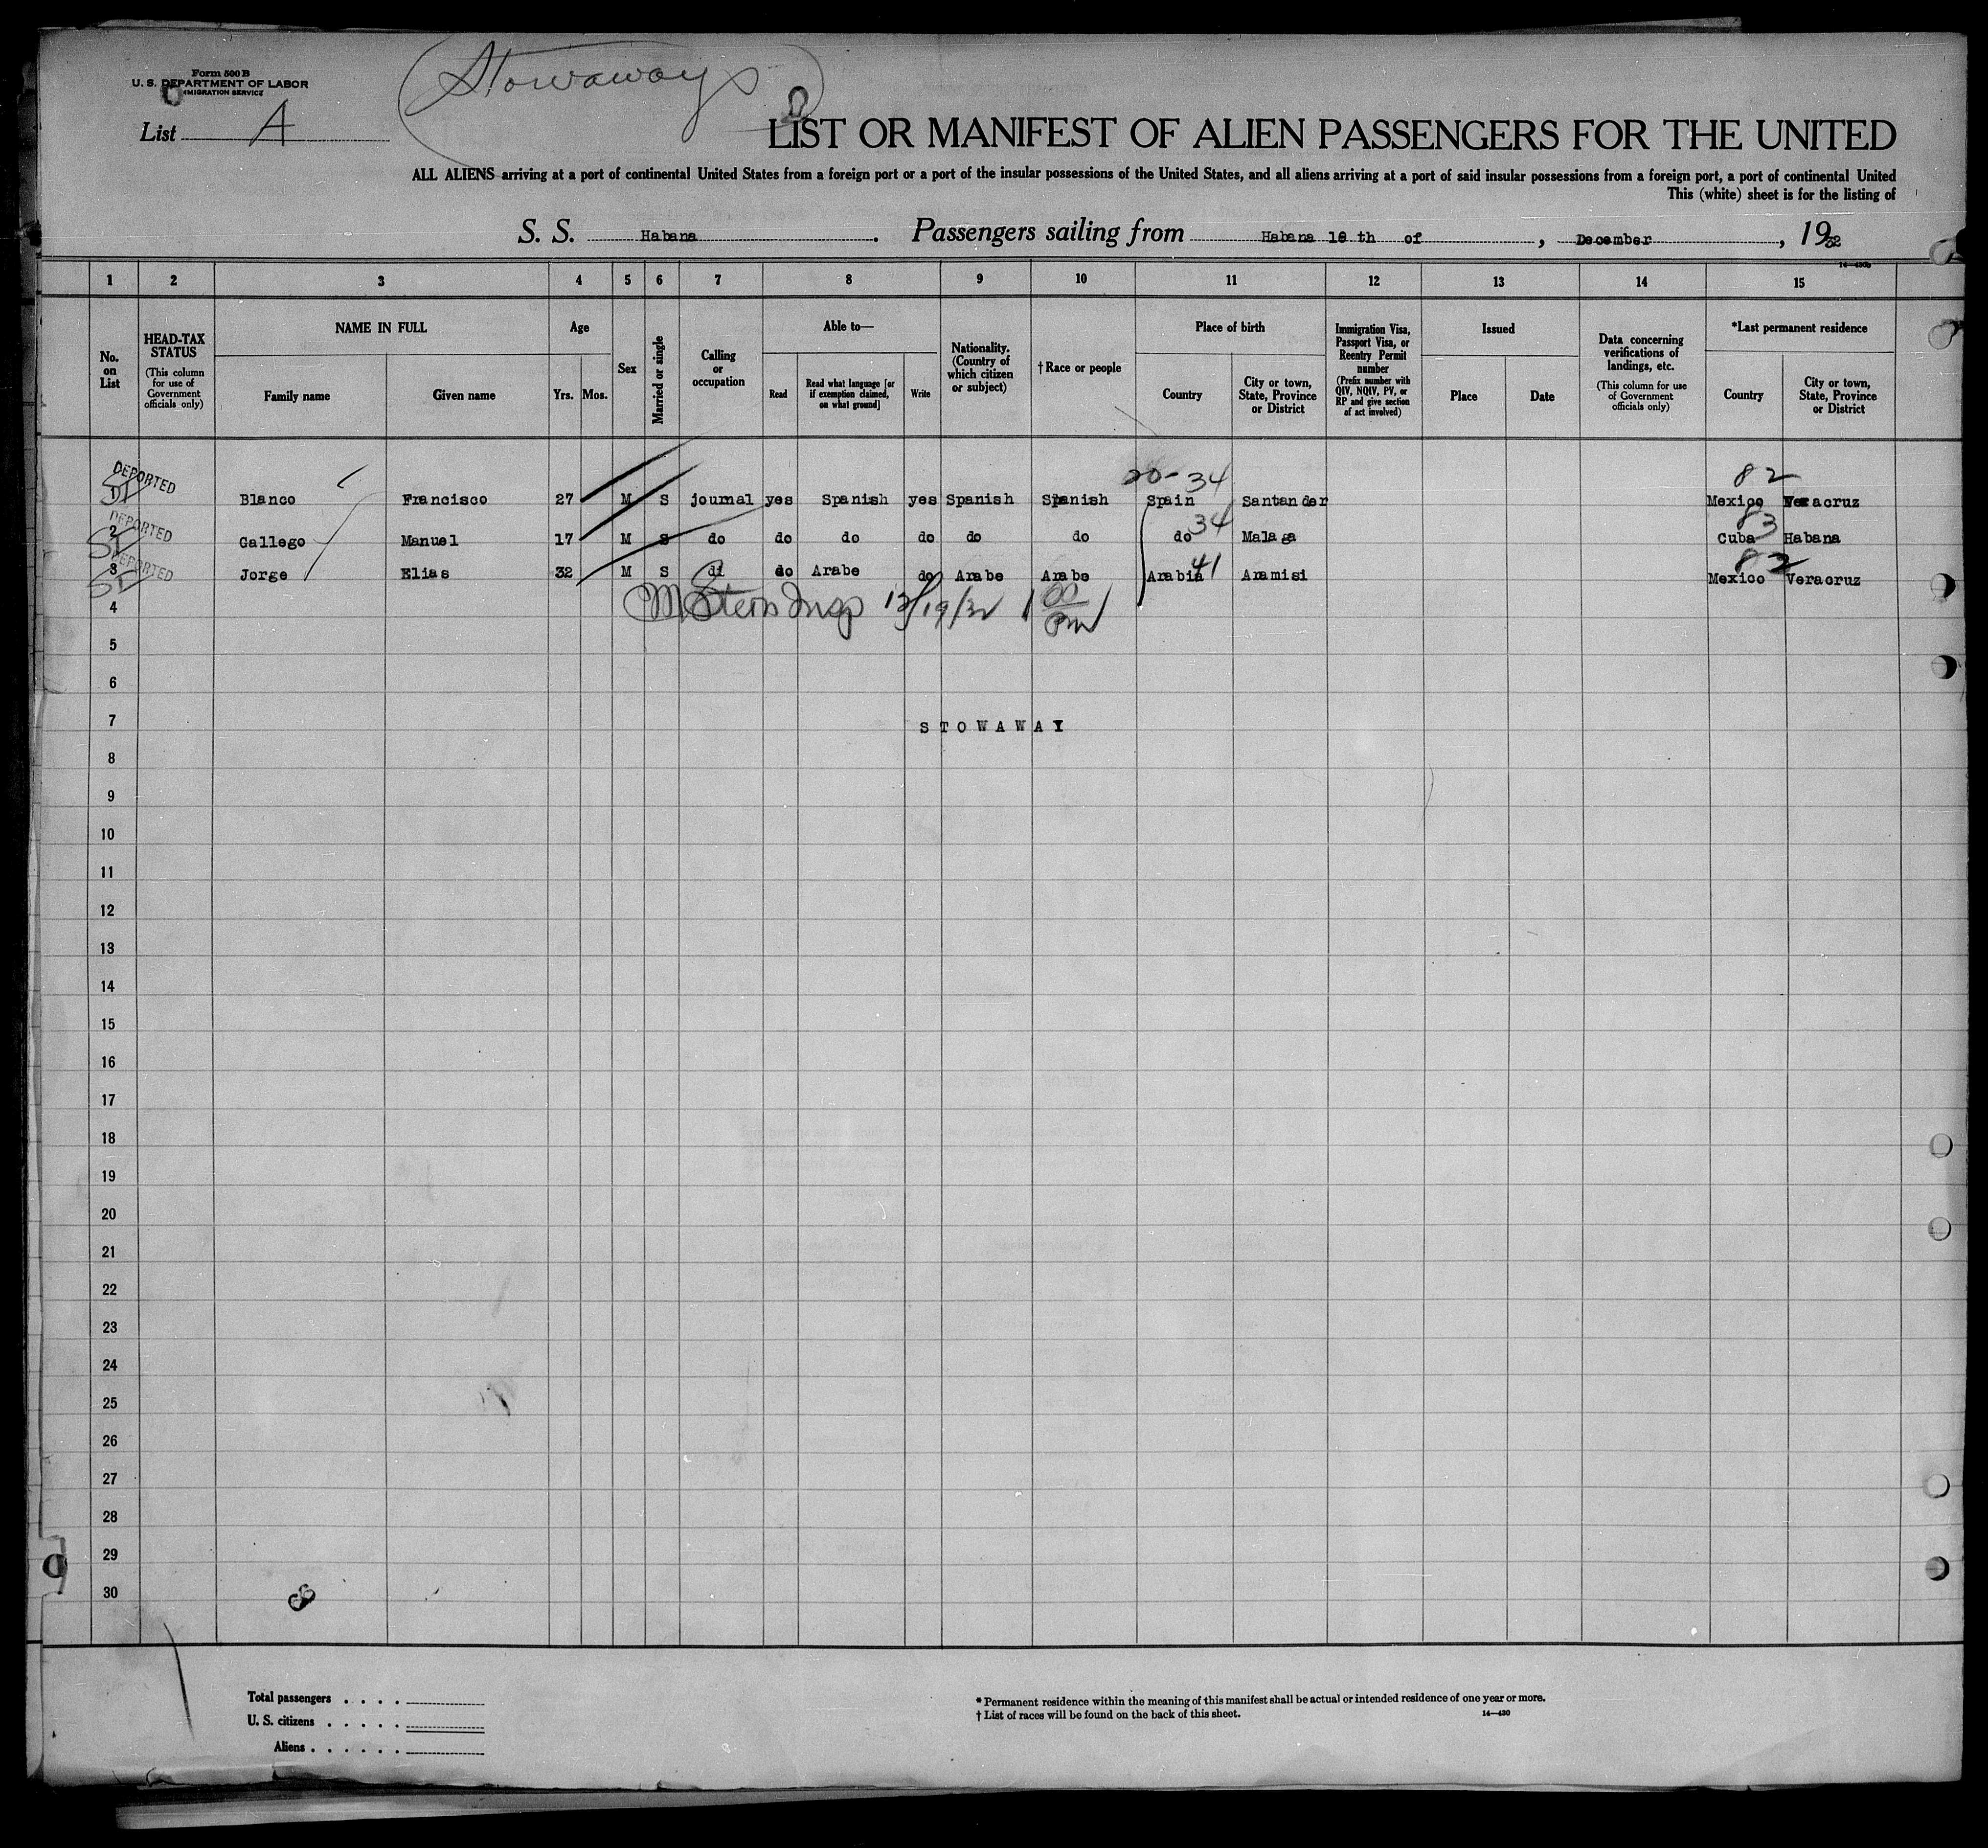 Form 500 B
U. S. DEPARTMENT OF LABOR
IMMIGRATION SERVICE
Stowaways
List A
LIST OR MANIFEST OF ALIEN PASSENGERS FOR THE UNITED
ALL ALIENS arriving at a port of continental United States from a foreign port or a port of the insular possessions of the United States, and all aliens arriving at a port of said insular possessions from a foreign port, a port of continental United
This (white) sheet is for the listing of
S. S. Habana. Passengers sailing from Habana 18 th of, December, 1932
14—430b
1 2 3 4 5 6 7 8 9 10 11 12 13 14 15
No. on List
HEAD-TAX STATUS (This column for use of Government officials only)
NAME IN FULL Family name Given name
Age Yrs. Mos.
Sex
Married or single
Calling or occupation
Able to— Read Read what language [or if exemption claimed, on what ground] Write
Nationality. (Country of which citizen or subject)
† Race or people
Place of birth Country City or town, State, Province or District
Immigration Visa, Passport Visa, or Reentry Permit number (Prefix number with QIV, NQIV, PV, or RP and give section of act involved)
Issued Place Date
Data concerning verifications of landings, etc. (This column for use of Government officials only)
*Last permanent residence Country City or town, State, Province or District
20-34 82
DEPORTED 1 Blanco Francisco 27 M S journal yes Spanish yes Spanish Spanish Spain Santander Mexico Veracruz
34 83
DEPORTED 2 Gallego Manuel 17 M S do do do do do do do Malaga Cuba Habana
41 82
DEPORTED 3 Jorge Elias 32 M S di do Arabe do Arabe Arabe Arabia Aramisi Mexico Veracruz
4 M Stern Insp 12/19/32 1 00 PM
5
6
7 STOWAWAY
8
9
10
11
12
13
14
15
16
17
18
19
20
21
22
23
24
25
26
27
28
29
30
Total passengers . . . .
U. S. citizens . . . . .
Aliens . . . . . .
* Permanent residence within the meaning of this manifest shall be actual or intended residence of one year or more.
† List of races will be found on the back of this sheet.
14—430